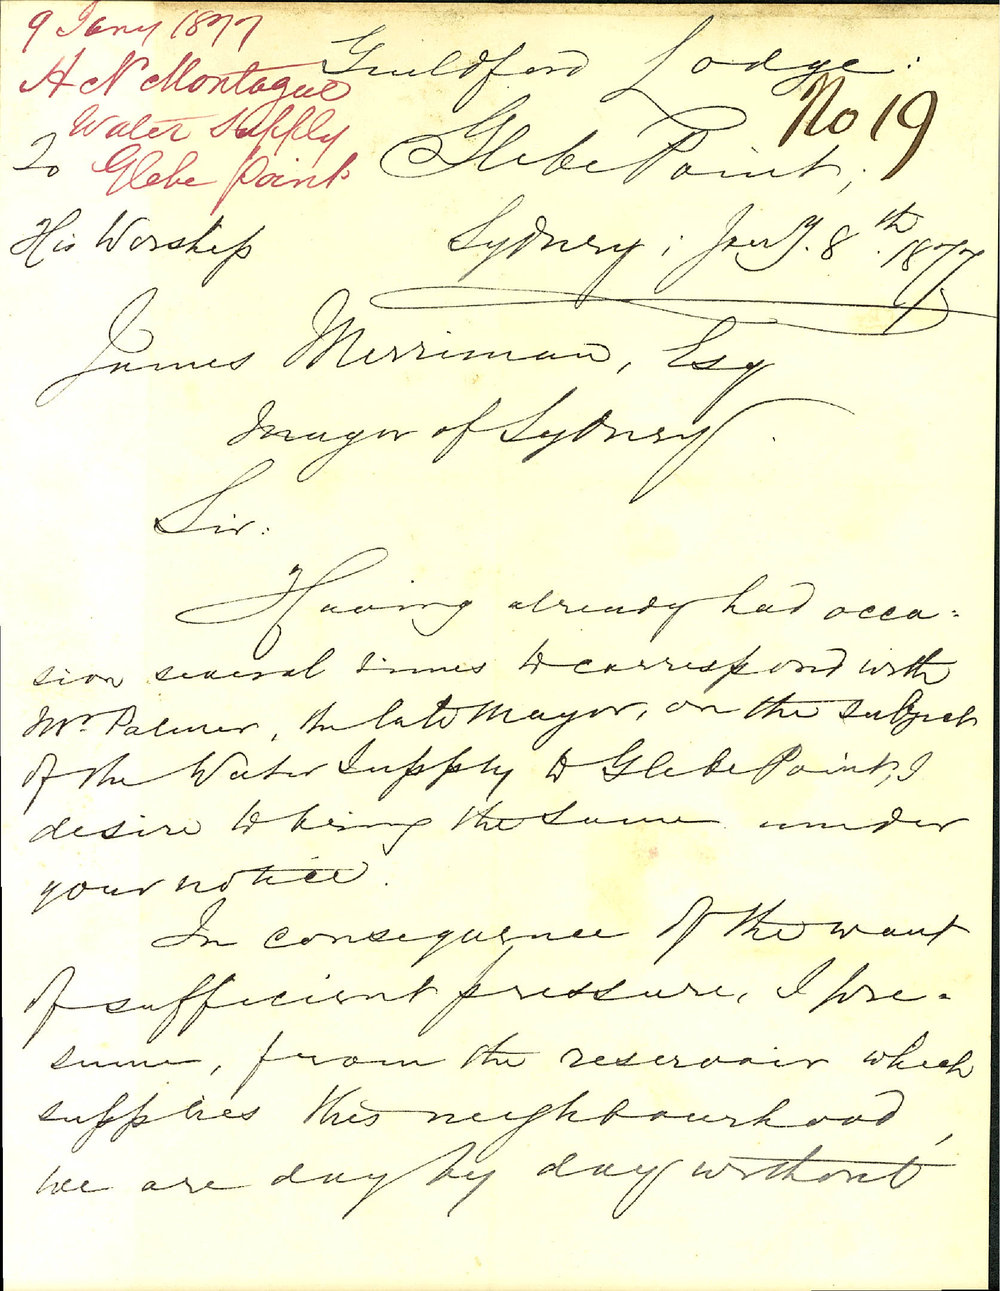 9 Jany 1877
H N Montague
Water Supply
Glebe Point
Guildford Lodge:
No 19
Glebe Point;
Sydney; Jany. 8th. 1877
To
His Worship
James Merriman, Esq
Mayor of Sydney.
Sir:
Having already had occa=
sion several times to correspond with
Mr. Palmer, the late Mayor, on the subject
of the Water Supply to Glebe Point, I
desire to bring the same under
your notice.
In consequence of the want
of sufficient pressure, I pre=
sume, from the reservoir which
supplies this neighbourhood,
we are day by day without